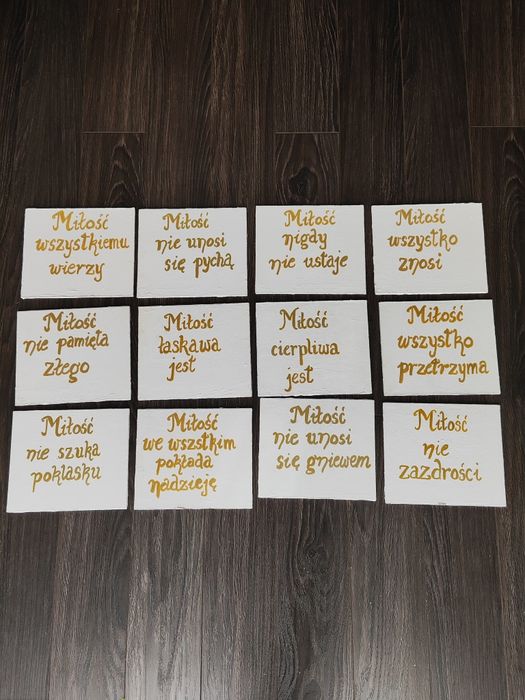 Miłość
wszystkiemu
wierzy
Miłość
nie unosi
się pychą
Miłość
nigdy
nie ustaje
Miłość
wszystko
znosi
Miłość
nie pamięta
złego
Miłość
łaskawa
jest
Miłość
cierpliwa
jest
Miłość
wszystko
przetrzyma
Miłość
nie szuka
poklasku
Miłość
we wszstkim
pokłada
nadzieję
Miłość
nie unosi
się gniewem
Miłość
nie
zazdrości